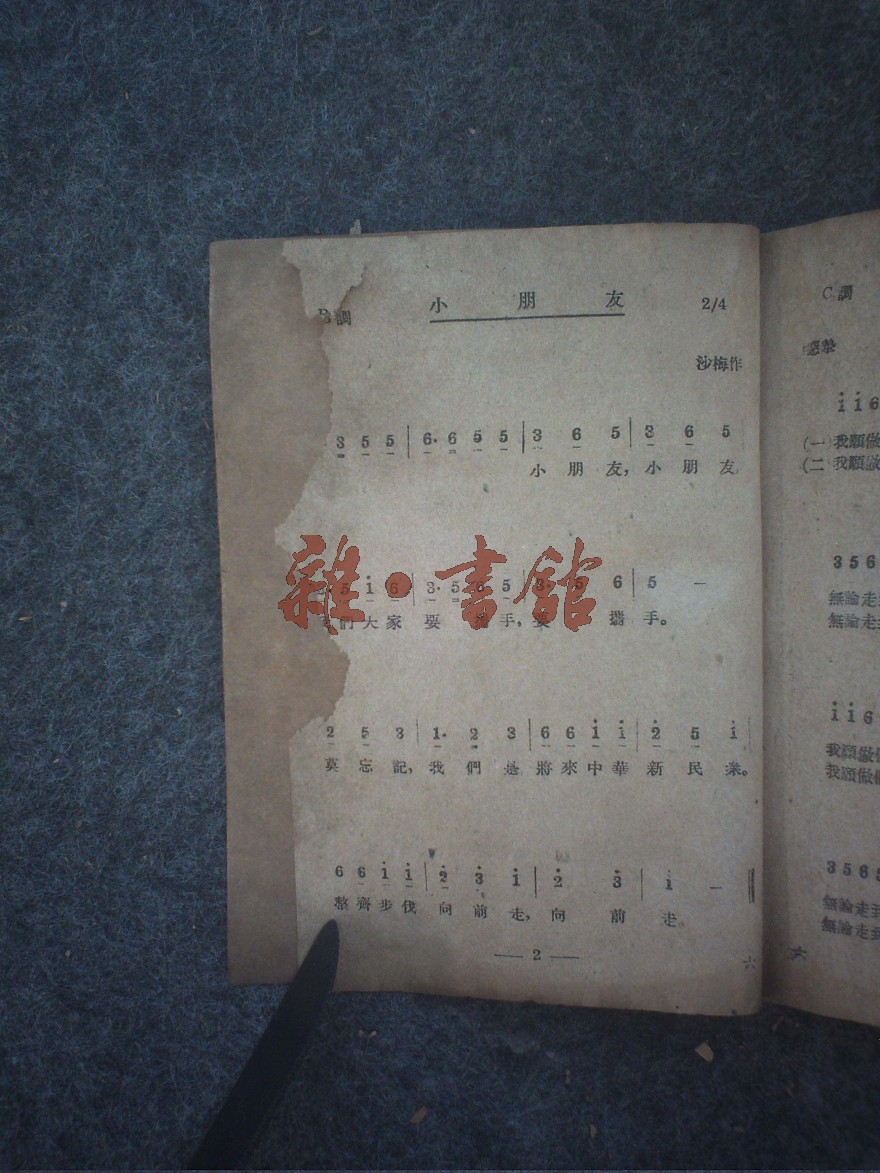 調 小朋友 2/4
沙梅作
3 5 5 | 6· 6 5 5 | 3 6 5 | 3 6 5
小朋友，小朋友
雜·書館
5 i 6 | 3· 5 6 5 | 3· 5 6 | 5 —
們大家要 手， 攜手。
2 5 3 | 1· 2 3 | 6 6 i i | 2 5 i
莫忘記，我們是將來中華新民衆。
6 6 i i | 2 3 i | 2 3 | i —
整齊步伐向前走，向前走。
— 2 —
六
C 調
i i 6
(一 我願做
(二 我願做
3 5 6
無論走到
無論走到
i i 6
我願做
我願做
3 5 6 5
無論走到
無論走到
六